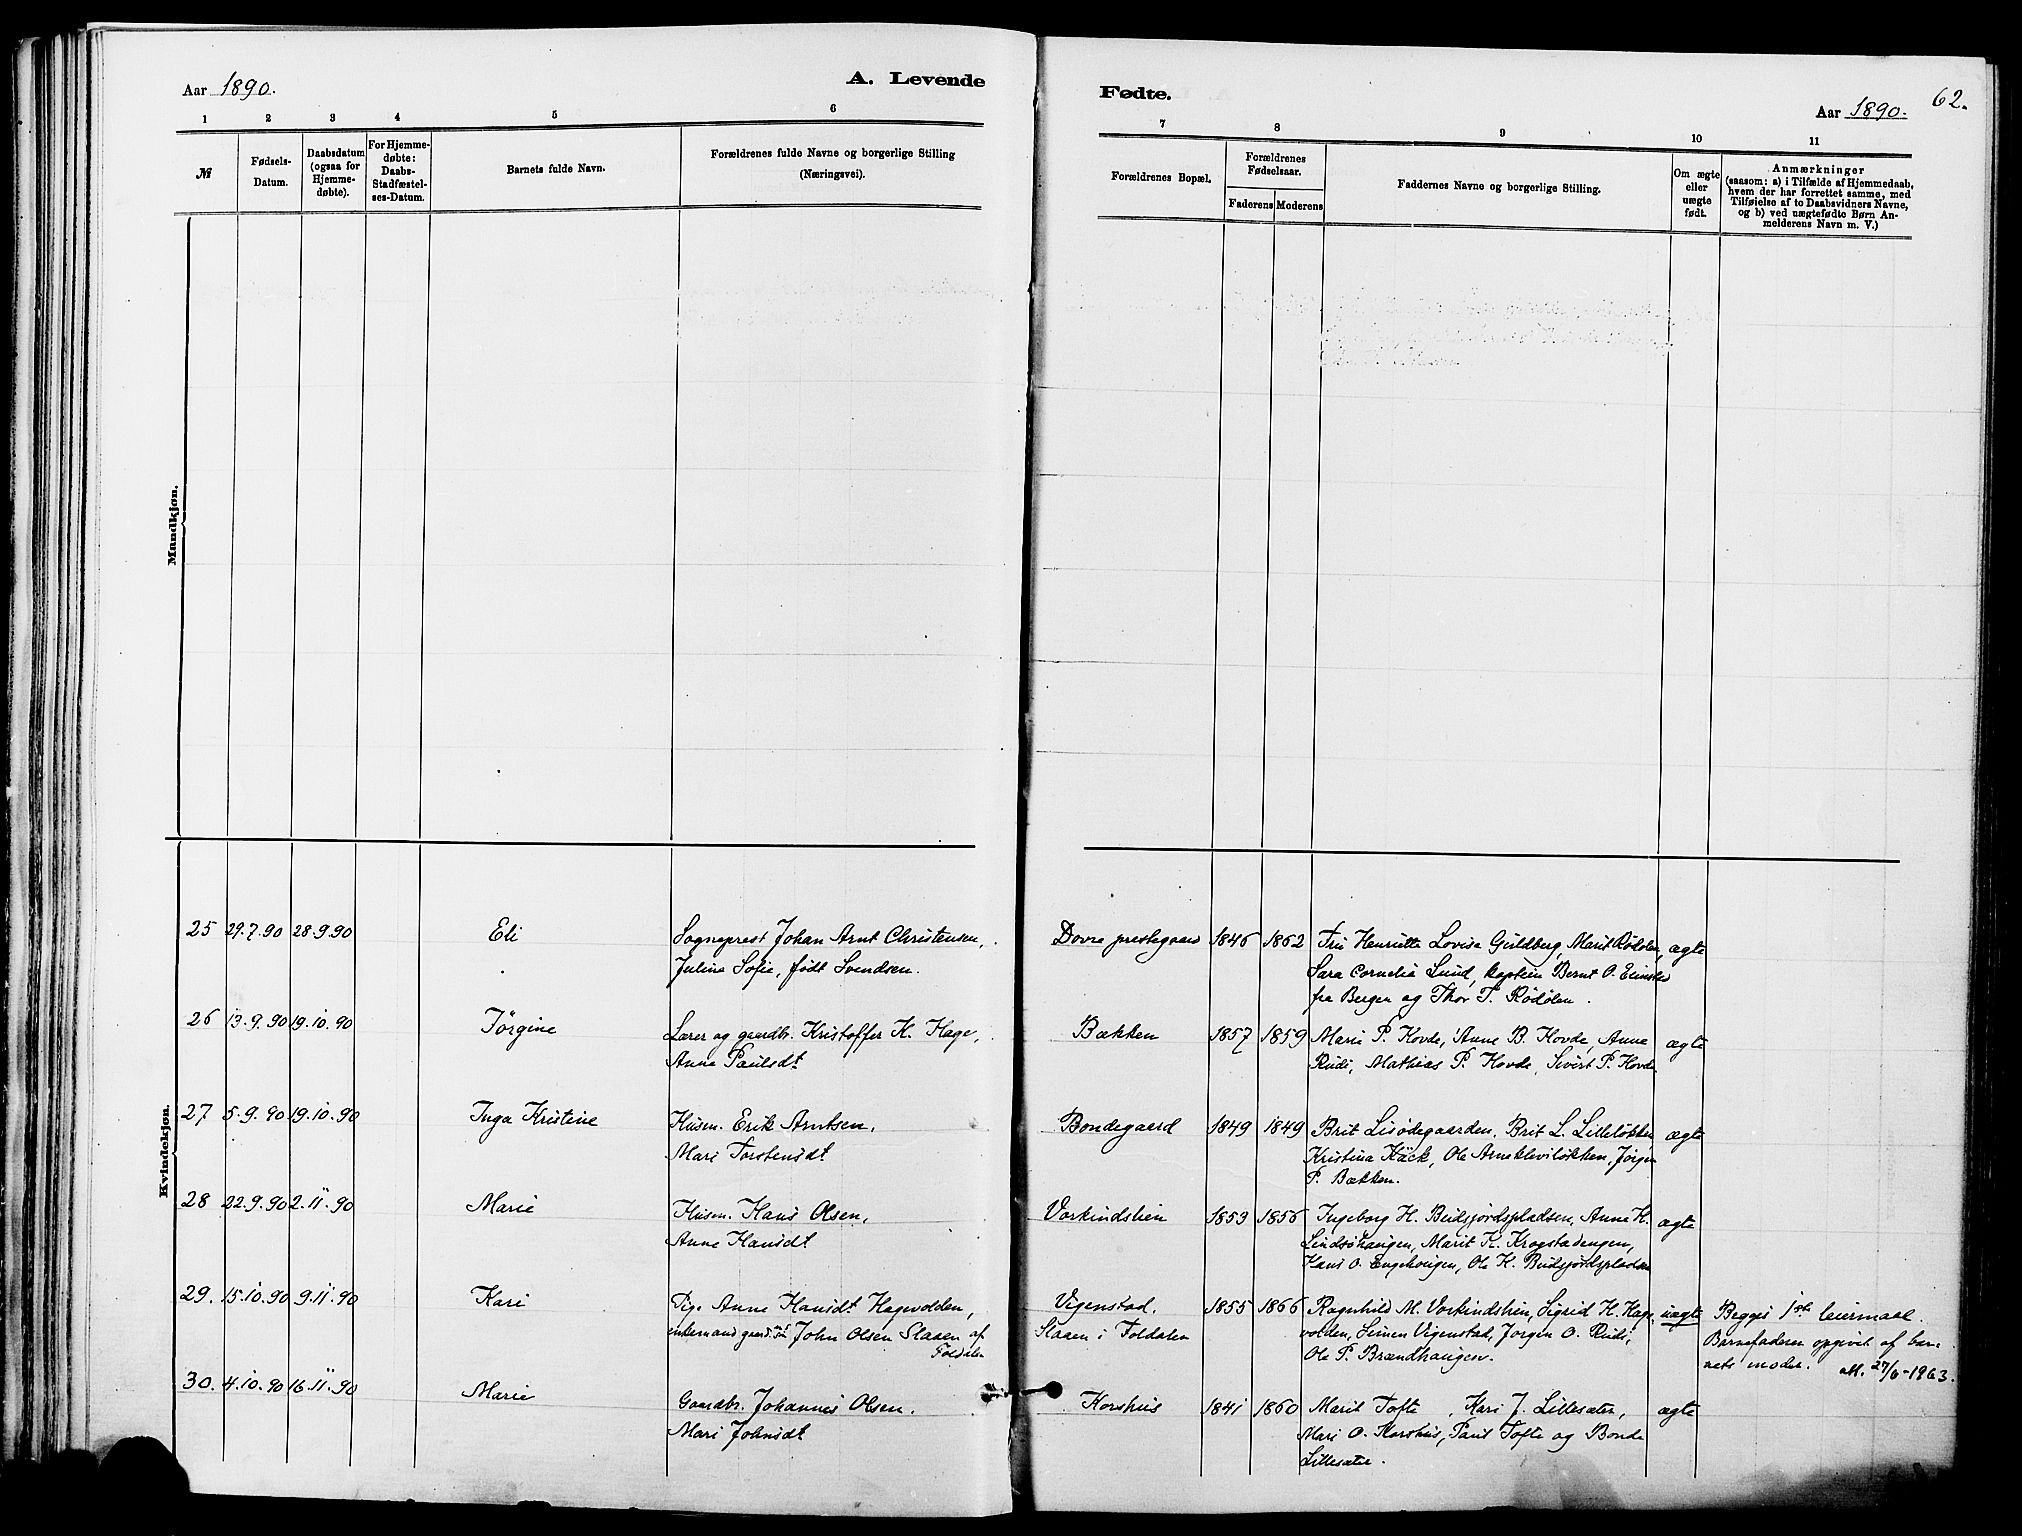 Aar 1890.
A. Levende
Fødte.
Aar 1890.
62.
1 2 3 4 5 6
7 8 9 10 11
№
Fødsels-
Datum.
Daabsdatum
(ogsaa for
Hjemme-
døbte).
For Hjemme-
døbte:
Daabs-
Stadfæstel-
ses-Datum.
Barnets fulde Navn.
Forældrenes fulde Navne og borgerlige Stilling
(Næringsvei).
Forældrenes Bopæl.
Forældrenes
Fødselsaar.
Faderens Moderens
Faddernes Navne og borgerlige Stilling.
Om ægte
eller
uægte
født.
Anmærkninger
(saasom: a) i Tilfælde af Hjemmedaab,
hvem der har forrettet samme, med
Tilføielse af to Daabsvidners Navne,
og b) ved uægtefødte Børn An-
melderens Navn m. V.)
Mandkjøn.
Kvindekjøn.
25 29.7.90 28.9.90 Eli Sogneprest Johan Arnt Christensen, Dovre prestegaard 1846 1862 Fru Henriette Lovise Guldberg, Marit Rødølen, ægte
Juline Sofie, født Svendsen. Sara Cornelia Lund, kaptein Bernt O.
fra Bergen og Thor T. Rødølen.
26 13.9.90 19.10.90 Jørgine Lærer og gaardbr. Kristoffer K. Hage, Bækken 1857 1859 Mari P. Hovde, Anne B. Hovde, Anne ægte
Anne Paulsdt Rudi, Mathias P. Hovde, Sivert P. Hovde.
27 5.9.90 19.10.90 Inga Kristine Husm. Erik Arntsen, Bondegaard 1849 1849 Brit Lisødegaarden, Brit L. Lilleløkken ægte
Mari Torstensdt Kristina Käck, Ole Arnekleviløkken, Jørgen
P. Bækken.
28 22.9.90 2.11.90 Marie Husm. Hans Olsen, Vorkindslien 1853 1856 Ingeborg H. Budsjordspladsen, Anne H. ægte
Anne Hansdt Lindsøhaugen, Marit K. Krogstadengen,
Hans O. Engehougen, Ole H. Budsjordspladsen
29. 15.10.90 9.11.90 Kari Pige Anne Hansdt Hagevolden, Vigenstad. 1855 1866 Ragnhild M. Vorkindslien, Sigrid H. Hage- uægte Begges 1ste leiermaal.
enkemand gaardm John Olsen Slaaen af Slaaen i Foldalen volden, Simen Vigenstad, Jørgen O. Rudi, Barnefaderen opgivet af bar-
Foldalen Ole P. Brændhaugen. nets moder. att. 27/6-1963.
30. 4.10.90 16.11.90 Marie Gaardbr. Johannes Olsen. Korshus 1841 1860 Marit Tofte, Kari J. Lillesæter, ægte
Mari Johnsdt Mari O. Korshus, Paul Tofte og Bonde
Lillesæter.